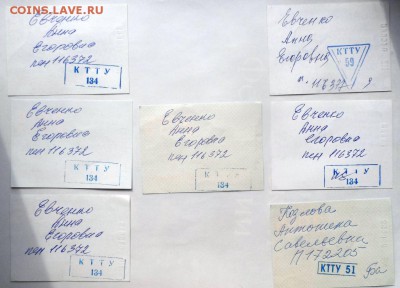 COINS.LAV.RU
Евченко
Анна
Егоровна
пен 116372
КТТУ
134
Евченко
Анна
Егоровна
п. 116372
КТТУ
59
Евченко
Анна
Егоровна
пен 116372
КТТУ
134
Евченко
Анна
Егоровна
пен 116372
Евченко
Анна
Егоровна
пен 116372
КТТУ
134
Евченко
Анна
Егоровна
пен 116372
КТТУ
134
Козлова
Антонина
Савельевна
П 172205
КТТУ 51